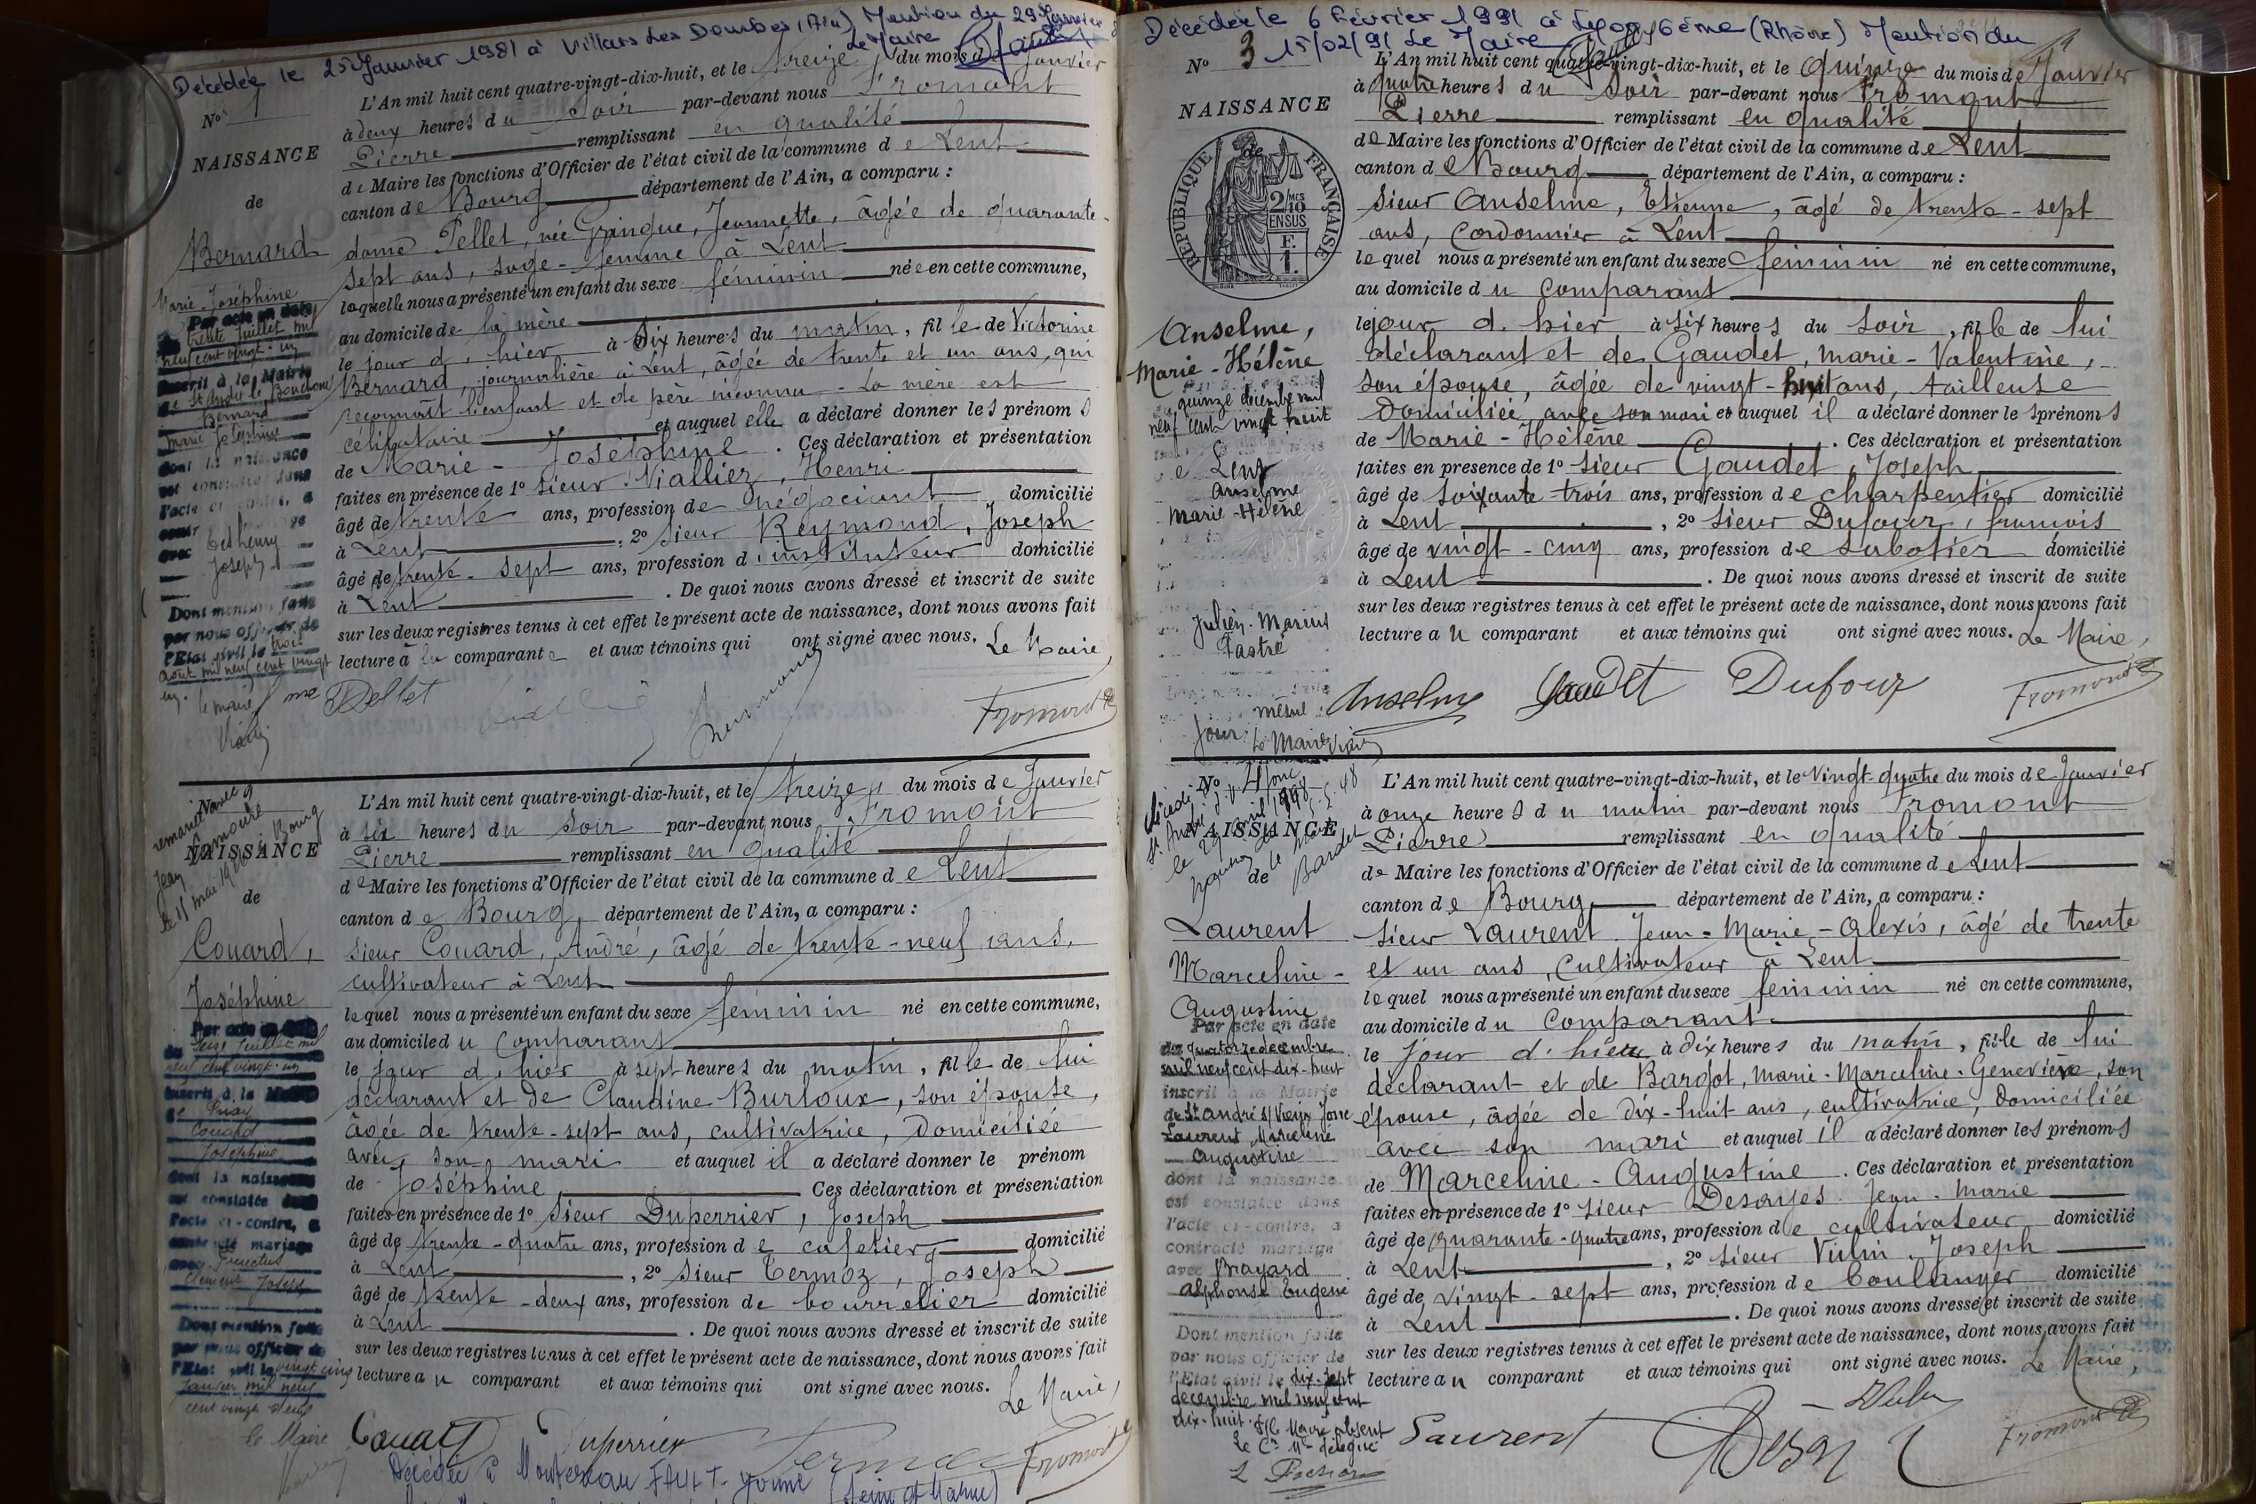 Décédée le 25 Janvier 1981 à Villars les Dombes (Ain) Mention du 29 Janvier
Le Maire
N° 1
NAISSANCE
de
Bernard
Marie-Joséphine
Par acte en date
trente Juillet mil
neuf cent vingt-un
inscrit à la Mairie
Bernard
Marie Joséphine
dont la naissance
est constatée dans
l'acte ci-contre, a
avec
Joseph
Dont mention faite
par nous officier de
l'Etat civil le trois
août mil neuf cent vingt
un. le maire
L'An mil huit cent quatre-vingt-dix-huit, et le treize du mois de Janvier
à deux heures du soir par-devant nous Fromont
Pierre remplissant en qualité
de Maire les fonctions d'Officier de l'état civil de la commune de Lent
canton de Bourg département de l'Ain, a comparu :
dame Pellet, née Gringue, Jeannette, âgée de quarante-
sept ans, sage-femme à Lent
laquelle nous a présenté un enfant du sexe féminin née en cette commune,
au domicile de la mère
le jour d'hier à six heures du matin, fille de Victorine
Bernard, journalière à Lent, âgée de trente et un ans, qui
reconnaît l'enfant et de père inconnu - La mère est
célibataire et auquel elle a déclaré donner les prénoms
de Marie-Joséphine. Ces déclaration et présentation
faites en présence de 1° sieur Vialliez, Henri
âgé de trente ans, profession de négociant domicilié
à Lent, 2° sieur Reymond, Joseph
âgé de trente-sept ans, profession d'instituteur domicilié
à Lent. De quoi nous avons dressé et inscrit de suite
sur les deux registres tenus à cet effet le présent acte de naissance, dont nous avons fait
lecture à la comparante et aux témoins qui ont signé avec nous. Le Maire,
me Pellet Reymond Fromont
remariée
Jean
le 11 mai à Bourg
NAISSANCE
de
Couard,
Joséphine
Par acte en date
du seize Juillet mil
neuf cent vingt-un
inscrit à la
Couard
Joséphine
dont la naissance
est constatée dans
l'acte ci-contre, a
contracté mariage
avec
Clément Joseph
Dont mention faite
par nous officier de
l'Etat civil le vingt cinq
Janvier mil neuf
cent vingt deux
le Maire
L'An mil huit cent quatre-vingt-dix-huit, et le treize du mois de Janvier
à six heures du soir par-devant nous Fromont
Pierre remplissant en qualité
de Maire les fonctions d'Officier de l'état civil de la commune de Lent
canton de Bourg département de l'Ain, a comparu :
sieur Couard, André, âgé de trente-neuf ans,
cultivateur à Lent
lequel nous a présenté un enfant du sexe féminin né en cette commune,
au domicile du comparant
le jour d'hier à sept heures du matin, fille de lui
déclarant et de Claudine Burloux, son épouse,
âgée de trente-sept ans, cultivatrice, domiciliée
avec son mari et auquel il a déclaré donner le prénom
de Joséphine Ces déclaration et présentation
faites en présence de 1° sieur Duperrier, Joseph
âgé de trente-quatre ans, profession de cafetier domicilié
à Lent, 2° sieur Termoz, Joseph
âgé de trente-deux ans, profession de bourrelier domicilié
à Lent. De quoi nous avons dressé et inscrit de suite
sur les deux registres tenus à cet effet le présent acte de naissance, dont nous avons fait
lecture au comparant et aux témoins qui ont signé avec nous. Le Maire,
Couard Duperrier Termoz Fromont
Décédée à Montereau FAULT-Yonne (Seine et Marne)
Décédée le 6 Février 1991 à Lyon 6ème (Rhône) Mention du
15/02/91 Le Maire
N° 3
NAISSANCE
de
RÉPUBLIQUE FRANÇAISE
2/10 mes
EN SUS
F.
1.
Anselme,
Marie-Hélène
quinze décembre mil
neuf cent vingt huit
Lent
Anselme
Marie-Hélène
Julien-Marius
Pastré
même
Jour
Le Maire
L'An mil huit cent quatre-vingt-dix-huit, et le quinze du mois de Janvier
à quatre heures du soir par-devant nous Fromont
Pierre remplissant en qualité
de Maire les fonctions d'Officier de l'état civil de la commune de Lent
canton de Bourg département de l'Ain, a comparu :
sieur Anselme, Etienne, âgé de trente-sept
ans, cordonnier à Lent
lequel nous a présenté un enfant du sexe féminin né en cette commune,
au domicile du comparant
le jour d'hier à six heures du soir, fille de lui
déclarant et de Gaudet, Marie-Valentine,
son épouse, âgée de vingt-huit ans, tailleuse
domiciliée avec son mari et auquel il a déclaré donner les prénoms
de Marie-Hélène. Ces déclaration et présentation
faites en présence de 1° sieur Gaudet, Joseph
âgé de soixante-trois ans, profession de charpentier domicilié
à Lent, 2° sieur Dufour, françois
âgé de vingt-cinq ans, profession de sabotier domicilié
à Lent. De quoi nous avons dressé et inscrit de suite
sur les deux registres tenus à cet effet le présent acte de naissance, dont nous avons fait
lecture au comparant et aux témoins qui ont signé avec nous. Le Maire,
Anselme Gaudet Dufour Fromont
N° 4
NAISSANCE
de
Laurent
Marceline-
Augustine
Par acte en date
du quatorze décembre
mil neuf cent dix-huit
inscrit à la Mairie
de St André s/ Vieux Jonc
Laurent Marceline
Augustine
dont la naissance
est constatée dans
l'acte ci-contre, a
contracté mariage
avec Brayard
Alphonse Eugène
Dont mention faite
par nous officier de
l'Etat civil le dix-sept
décembre mil neuf cent
dix-huit. P/le Maire absent
Le Cer Mal délégué
L'An mil huit cent quatre-vingt-dix-huit, et le vingt-quatre du mois de Janvier
à onze heures du matin par-devant nous Fromont
Pierre remplissant en qualité
de Maire les fonctions d'Officier de l'état civil de la commune de Lent
canton de Bourg département de l'Ain, a comparu :
sieur Laurent Jean-Marie-Alexis, âgé de trente
et un ans, cultivateur à Lent
lequel nous a présenté un enfant du sexe féminin né en cette commune,
au domicile du comparant
le jour d'hier à dix heures du matin, fille de lui
déclarant et de Bargot, Marie-Marceline-Geneviève, son
épouse, âgée de dix-huit ans, cultivatrice, domiciliée
avec son mari et auquel il a déclaré donner les prénoms
de Marceline-Augustine. Ces déclaration et présentation
faites en présence de 1° sieur Desayes Jean-Marie
âgé de quarante-quatre ans, profession de cultivateur domicilié
à Lent, 2° sieur Vulin, Joseph
âgé de vingt-sept ans, profession de boulanger domicilié
à Lent. De quoi nous avons dressé et inscrit de suite
sur les deux registres tenus à cet effet le présent acte de naissance, dont nous avons fait
lecture au comparant et aux témoins qui ont signé avec nous. Le Maire,
Laurent Vulin Fromont